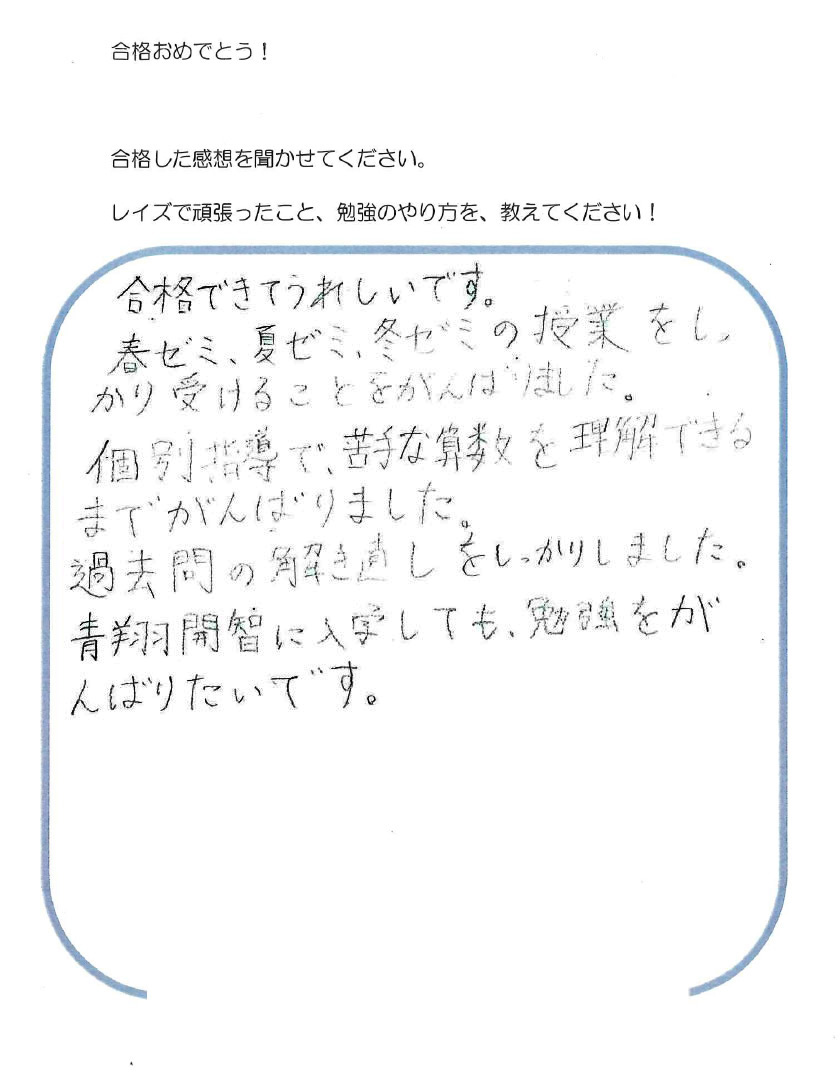 合格おめでとう！
合格した感想を聞かせてください。
レイズで頑張ったこと、勉強のやり方を、教えてください！
合格できてうれしいです。
春ゼミ、夏ゼミ、冬ゼミの授業をしっ
かり受けることをがんばりました。
個別指導で、苦手な算数を理解できる
までがんばりました。
過去問の解き直しをしっかりしました。
青翔開智に入学しても、勉強をが
んばりたいです。